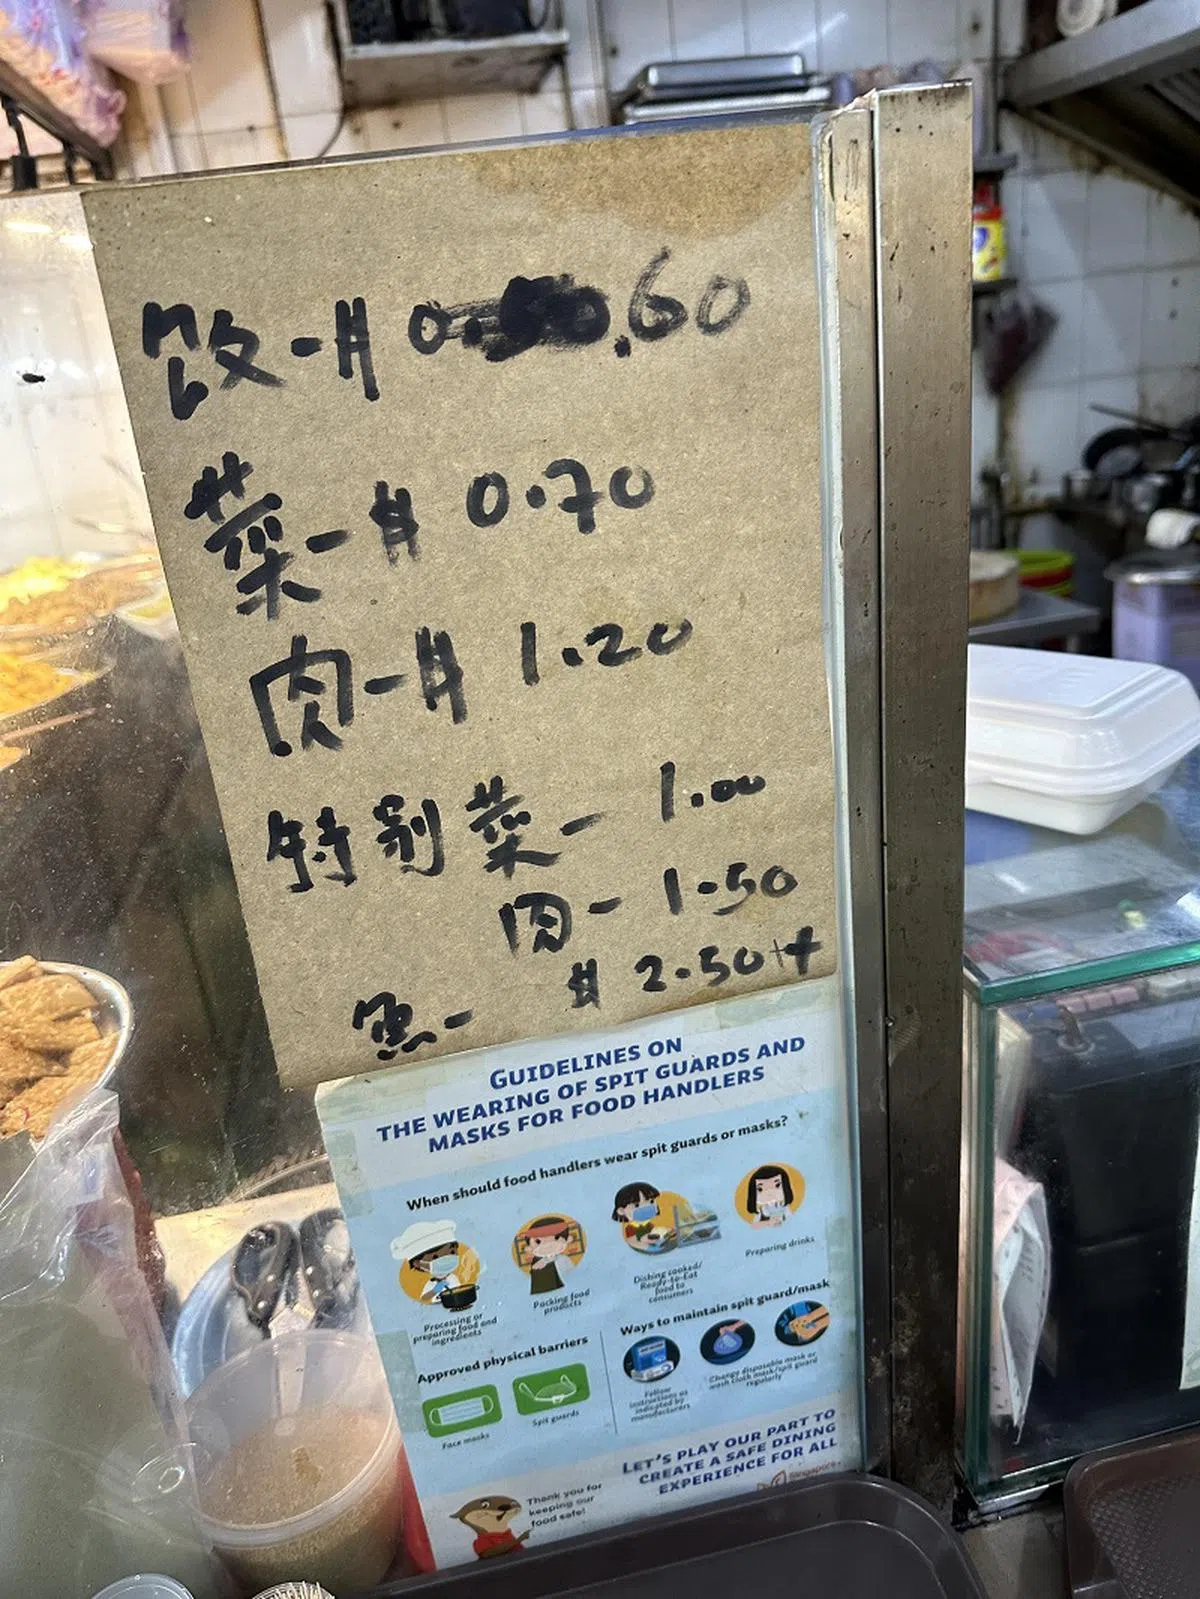 饭-$ 0.60
菜-$ 0.70
肉-$ 1.20
特别菜- 1.00
肉- 1.50
鱼- $ 2.50++
GUIDELINES ON
THE WEARING OF SPIT GUARDS AND
MASKS FOR FOOD HANDLERS
When should food handlers wear spit guards or masks?
Processing or
preparing food and
ingredients
Packing food
products
Dishing cooked/
Ready-to-Eat
food to
consumers
Preparing drinks
Approved physical barriers
Face masks
Spit guards
Ways to maintain spit guard/mask
Follow
instructions as
indicated by
manufacturers
Change disposable mask or
wash cloth mask/spit guard
regularly
LET'S PLAY OUR PART TO
CREATE A SAFE DINING
EXPERIENCE FOR ALL
Thank you for
keeping our
food safe!
Singapore